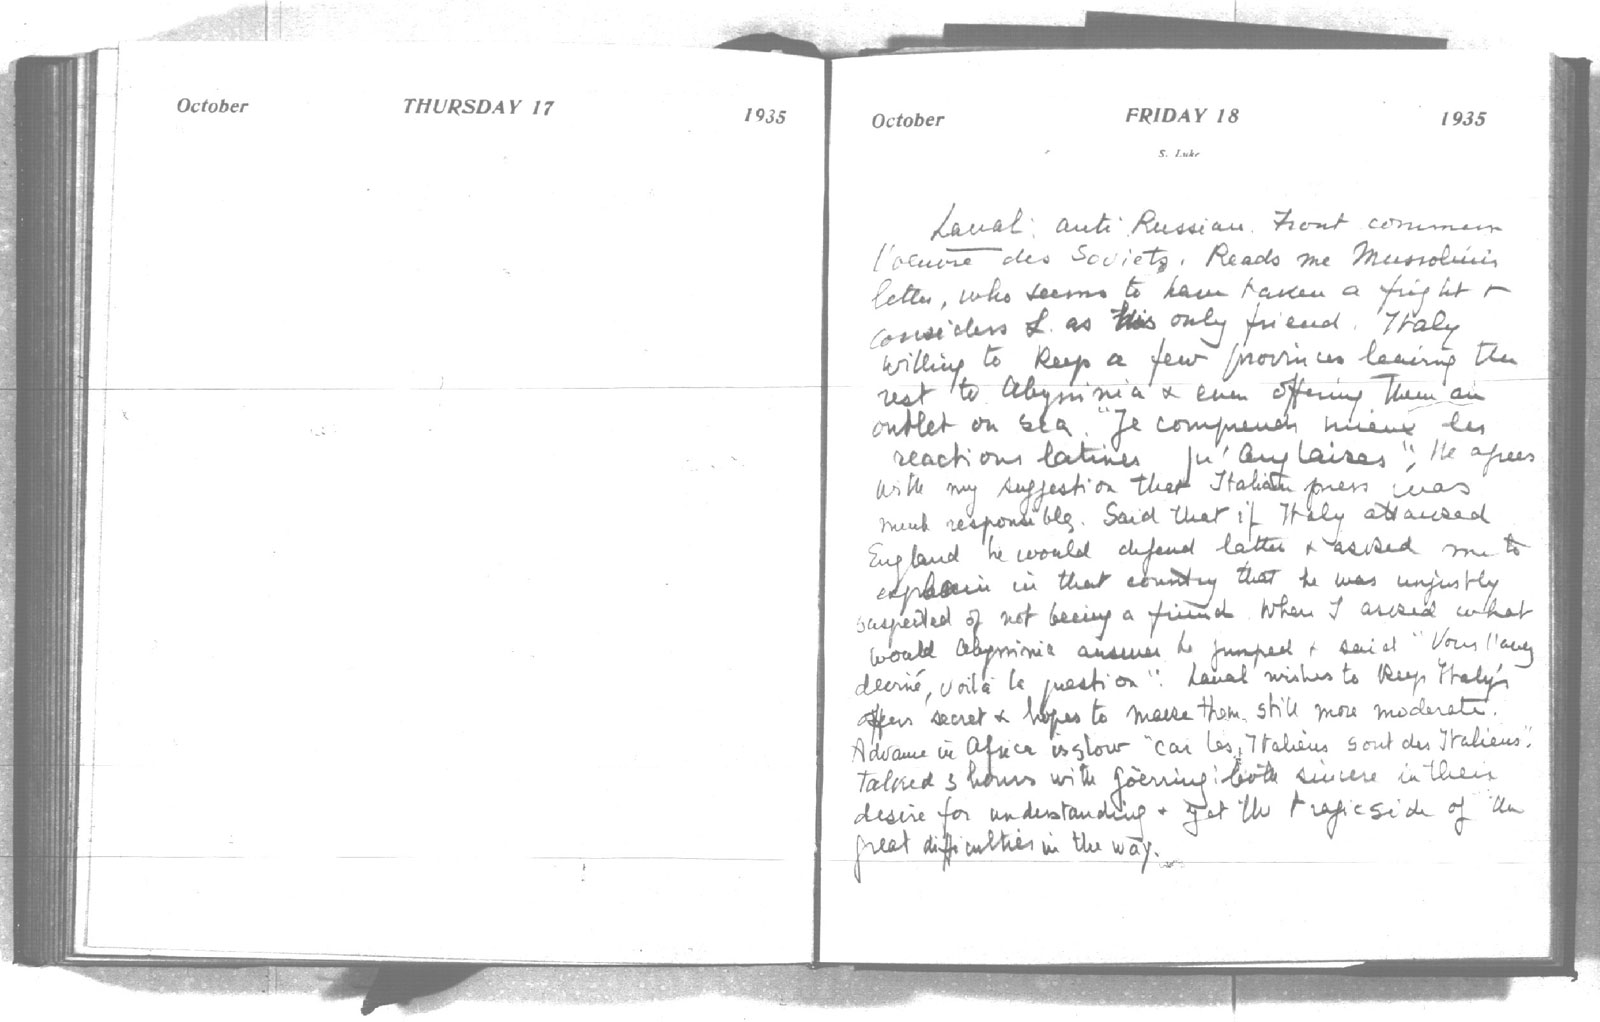 October THURSDAY 17 1935
October FRIDAY 18 1935
S. Luke
Laval: anti Russian. Front commun
l'oeuvre des Soviets. Reads me Mussolini's
letter, who seems to have taken a fright &
considers L. as his only friend. Italy
willing to keep a few provinces leaving the
rest to Abyssinia & even offering them an
outlet on sea. "Je comprends mieux les
reactions latines qu'anglaises". He agrees
with my suggestion that Italian press was
much responsible. Said that if Italy attacked
England he would defend latter & asked me to
explain in that country that he was unjustly
suspected of not beeing a friend. When I asked what
would Abyssinia answer he jumped & said "Vous l'avez
deviné, voilà la question". Laval wishes to keep Italy's
offers secret & hopes to make them still more moderate.
Advance in Africa is slow "car les Italiens sont des Italiens".
Talked 3 hours with Goerring: both sincere in their
desire for understanding & yet the tragic side of the
great difficulties in the way.